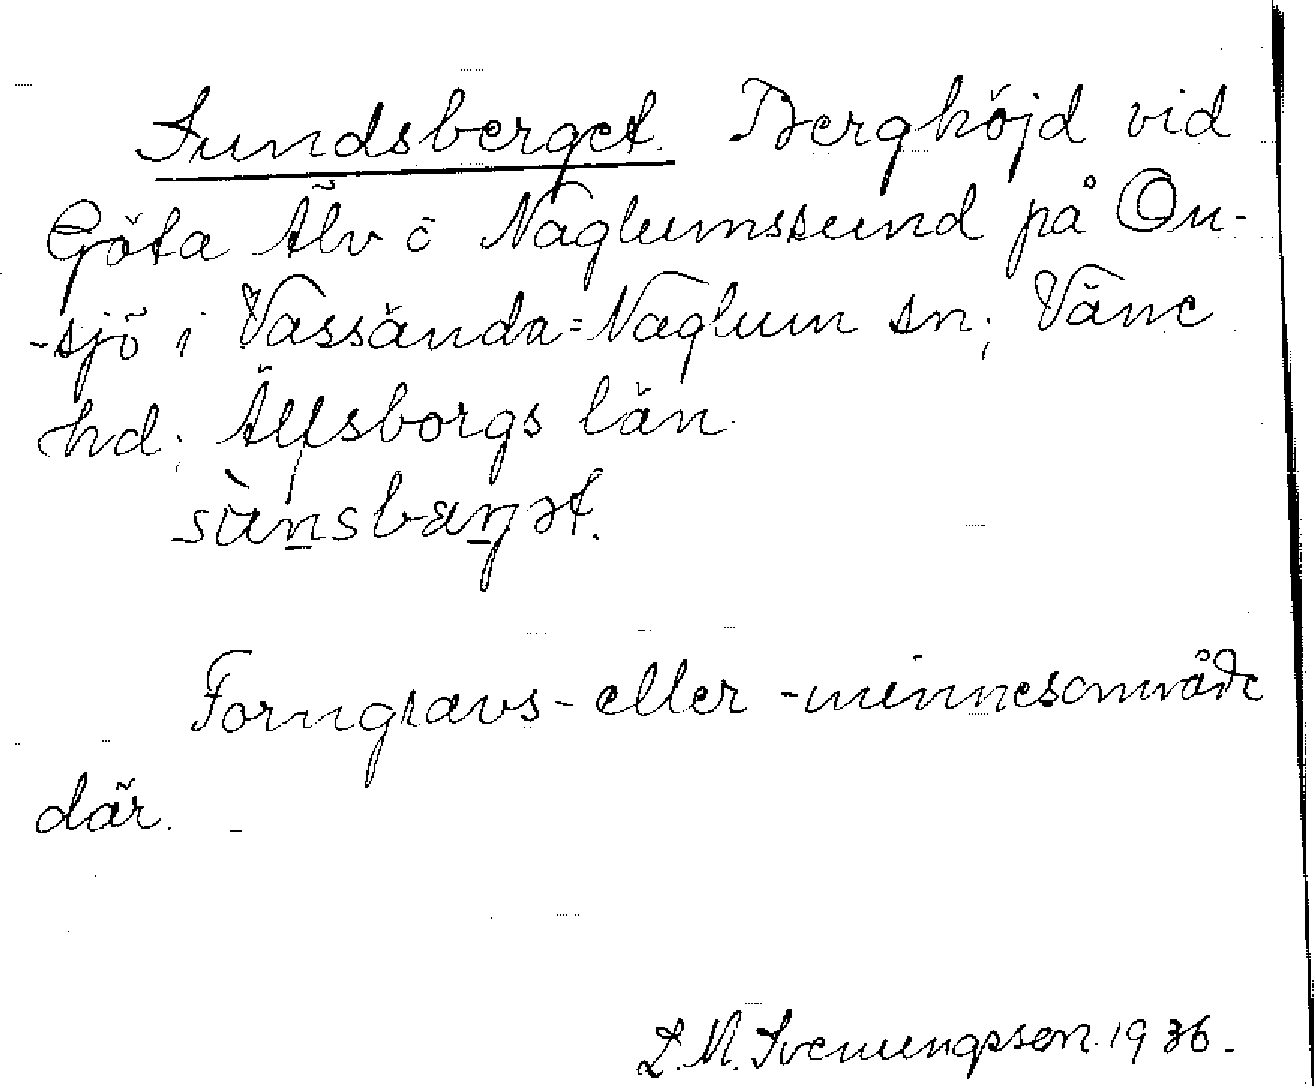 Sundsberget. Berghöjd vid
Göta Älv ö Naglumssund på On-
-sjö i Vassända=Naglum sn; Väne
hd; Älfsborgs län.
sùnsbæŋət.
Forngravs- eller -minnesområde
där. -
L. M. Svenungsson. 1936.